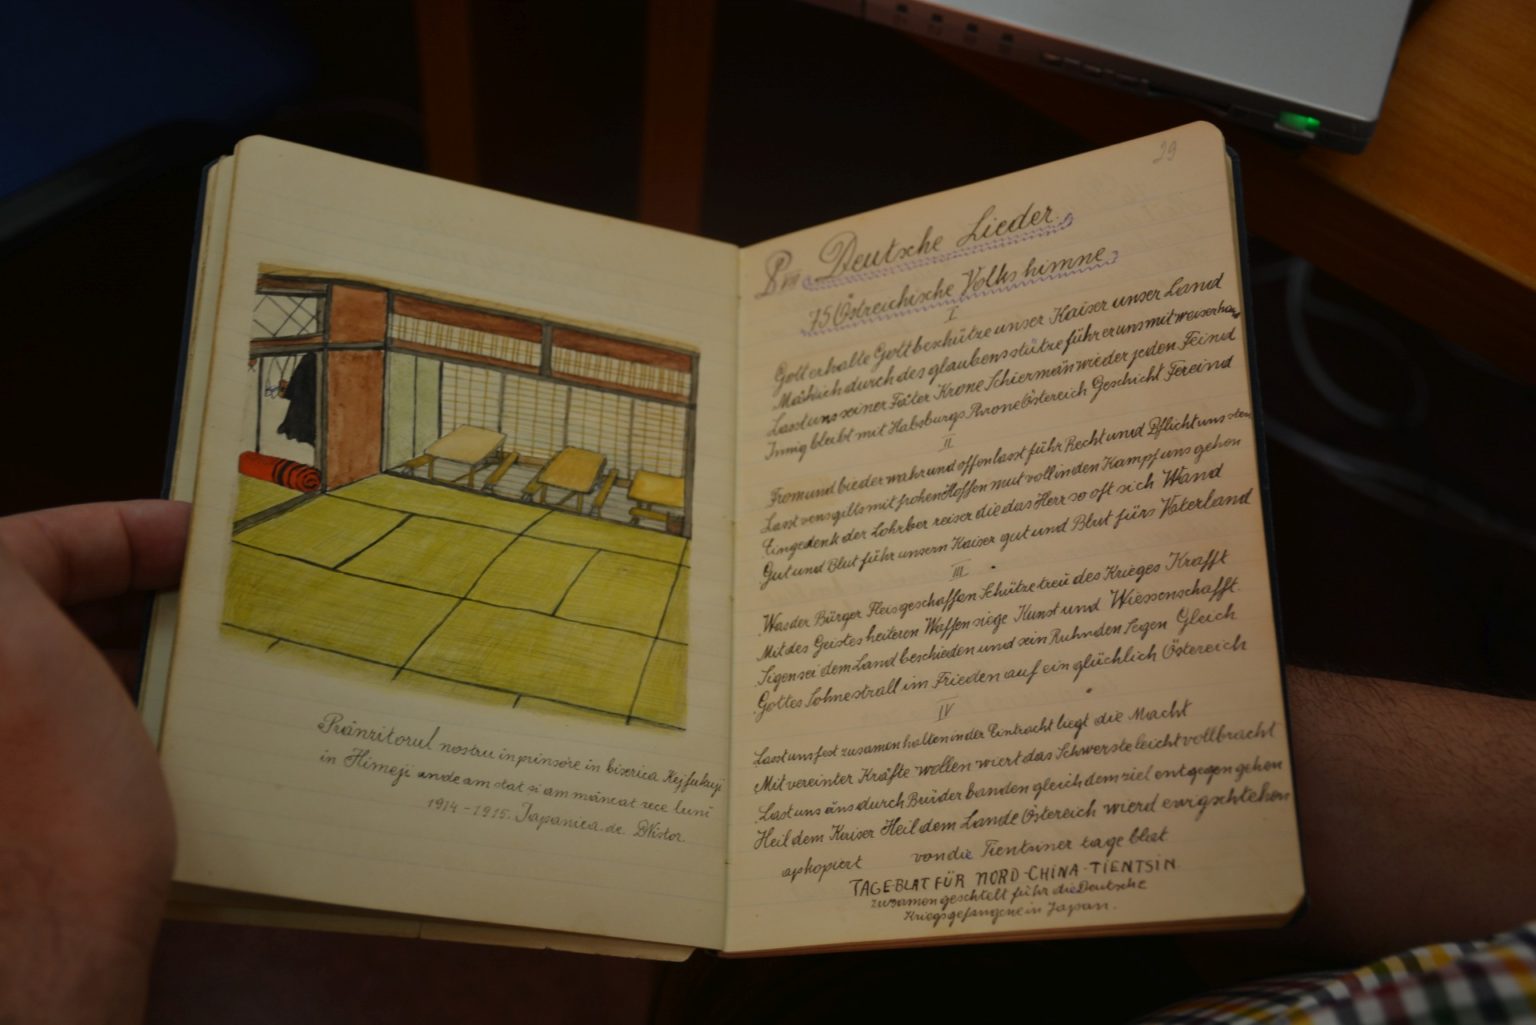 Prânzitorul nostru in prinsore in biserica Kejfukuji
in Himeji unde am stat si am mâncat zece luni
1914-1915. Japanica. de DNistor.
29
Deutsche Lieder
75 Östreichische Volkshimne
I
Gott erhalte Gott beschütze unser Kaiser unser Land
Mächich durch des glaubens stütze führ er uns mit weiser
Lasst uns seiner Fäter Krone Schiermän wieder jeden Feind
Innig bleibt mit Habsburgs Rrone Östereich Geschicht Fereind
II
From und bieder wahr und offen lasst führ Recht und Pflicht uns sten
Lasst vens gilts mit frohen Hoffen mut voll in den Kampf uns gehen
Eingedenk der Lohrber reiser die das Herr so oft sich Wand
Gut und Blut führ unsern Kaiser gut und Blut fürs Vaterland
III
Was der Bürger Fleis geschaffen Schütze treü des Krieges Krafft
Mit des Geistes heiteren Waffen siege Kunst und Wiessenschafft
Sigen sei dem Land beschieden und sein Ruhn den Segen Gleich
Gottes Sohne strall im Frieden auf ein glüchlich Östereich
IV
Lasst uns fest zusamen halten in der Eintracht liegt die Macht
Mit vereinter Kräfte wollen wiert das Schwerste leicht vollbracht
Last uns äins durch Brüder banden gleich dem ziel entgegen gehen
Heil dem Kaiser Heil dem Lande Östereich wierd ewig schtehen
apkopiert von die Tientsiner tage blat
TAGEBLAT FÜR NORD-CHINA-TIENTSIN.
zusamen geschtelt führ die Deutsche
Kriegsgefangene in Japan.